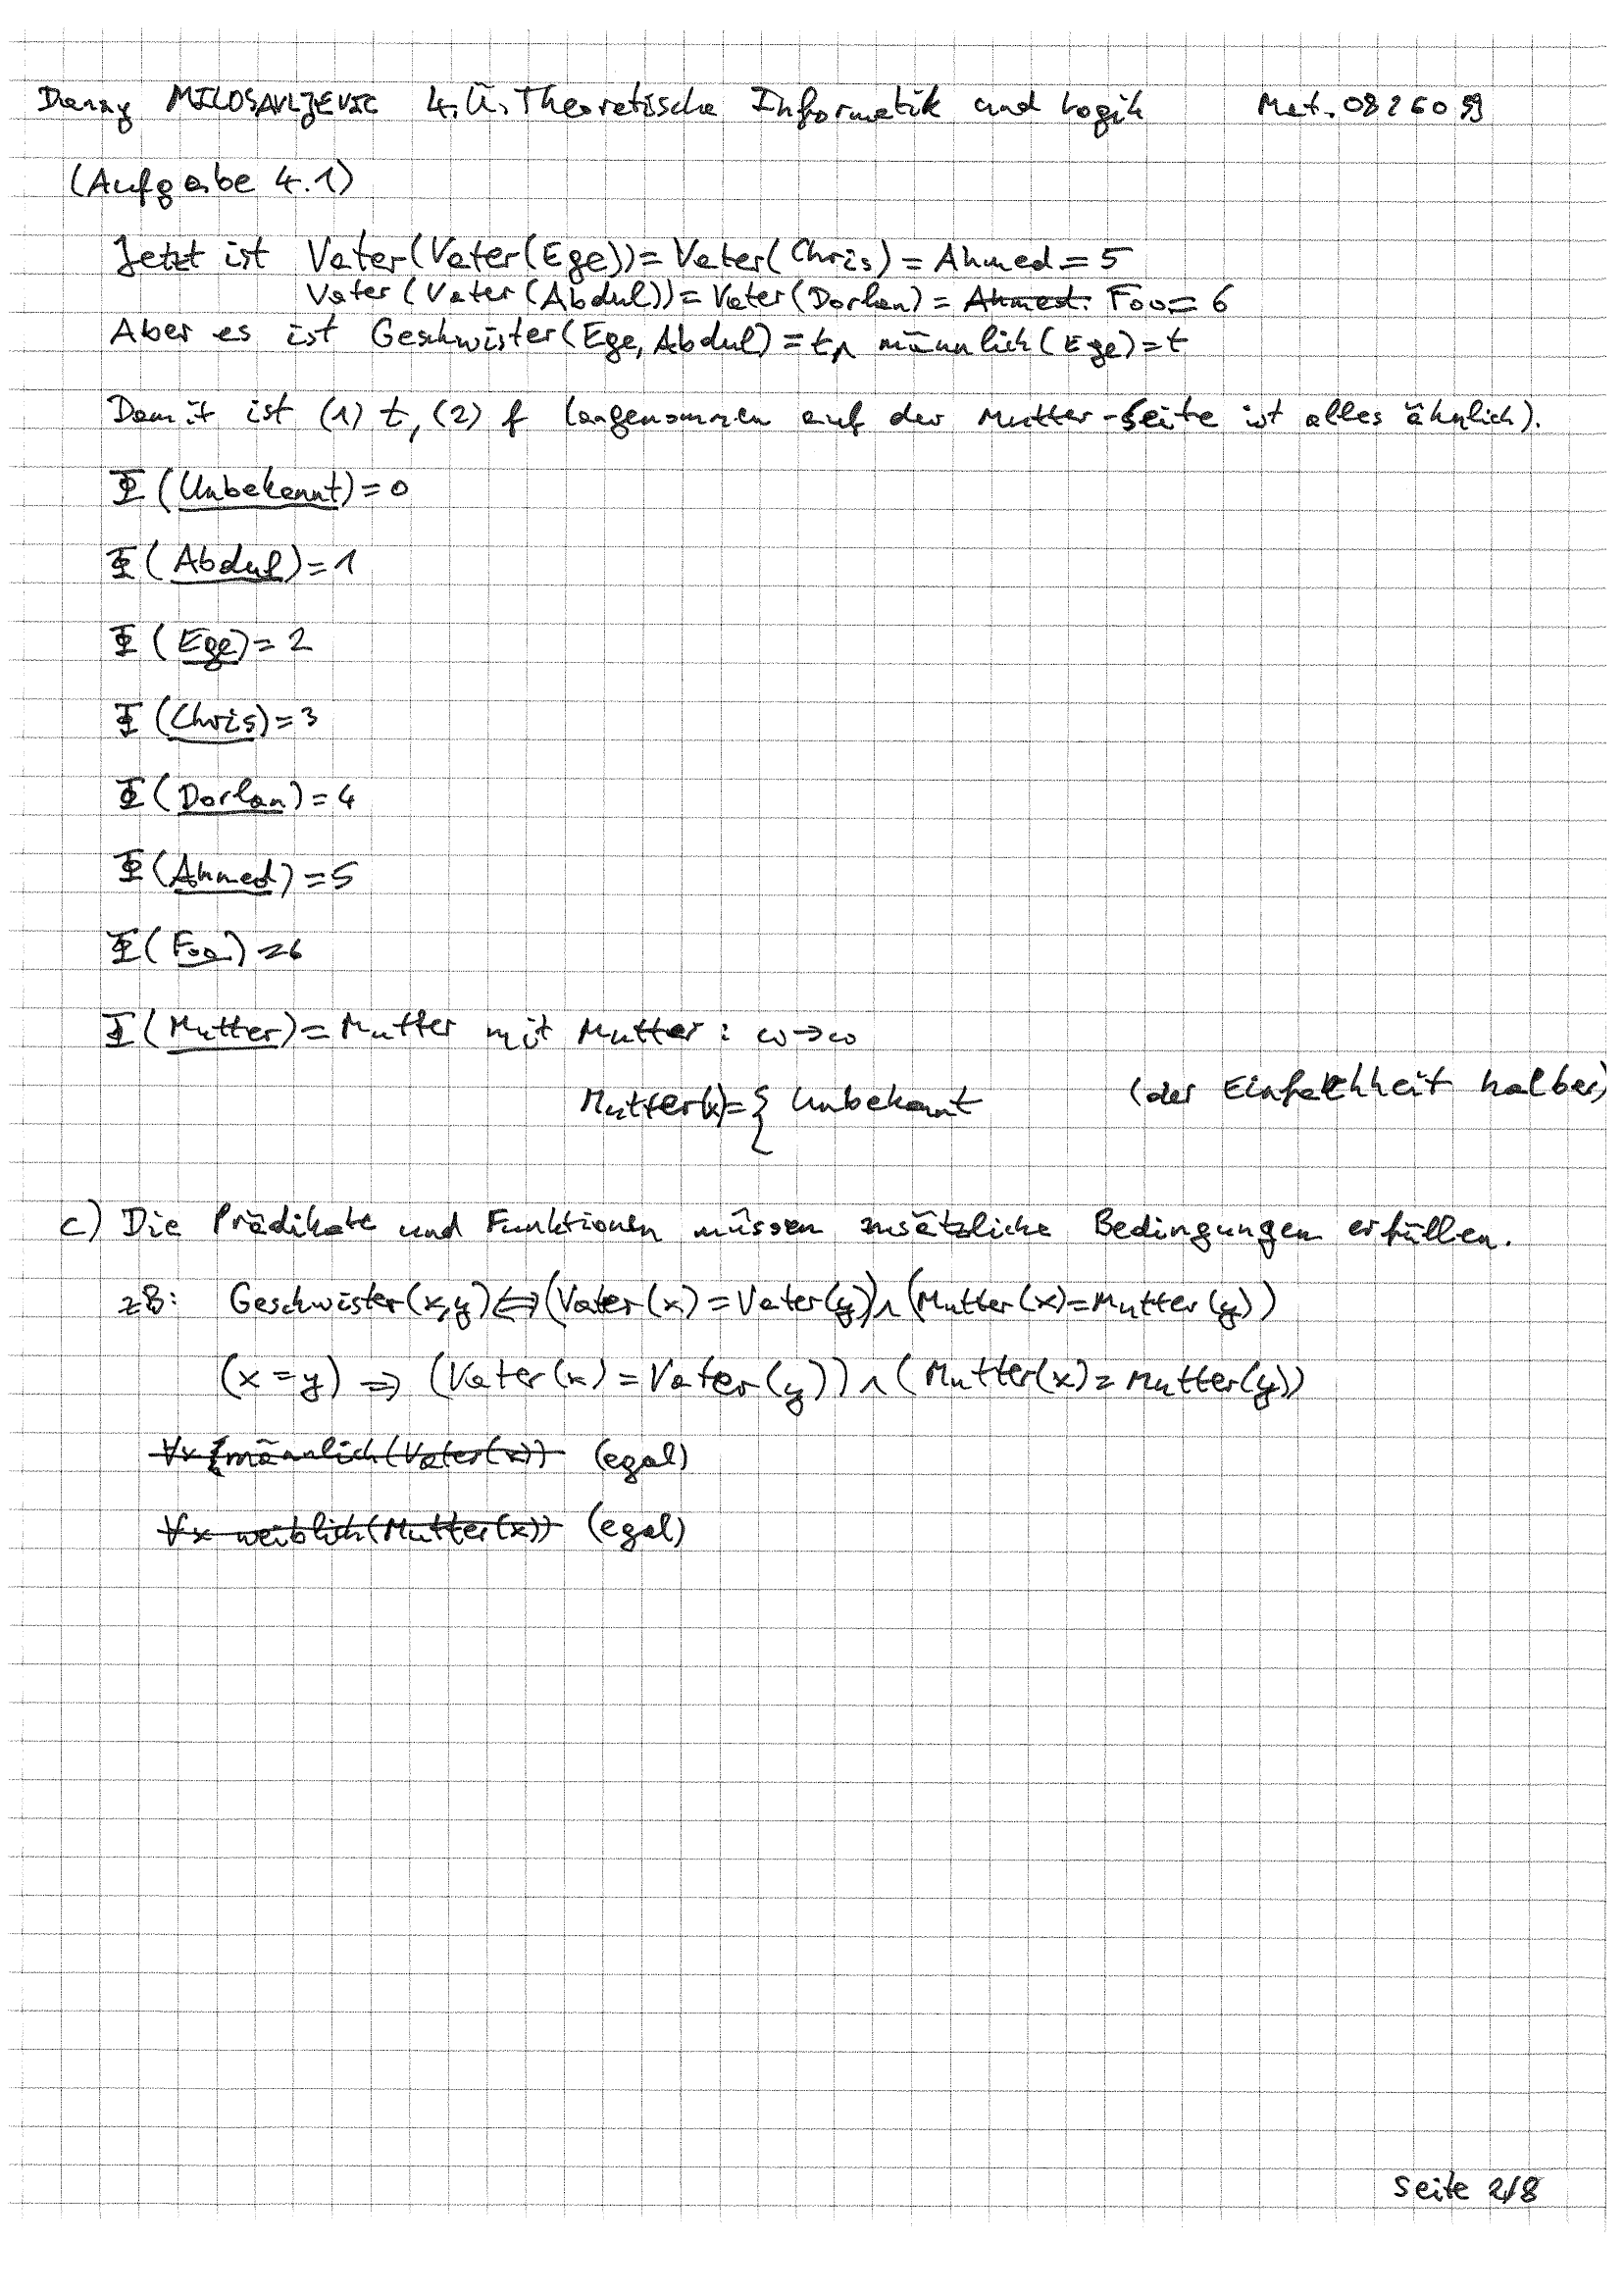 Danny MILOSAVLJEVIC 4.Ü. Theoretische Informatik und Logik Mat. 0826039
(Aufgabe 4.1)
Jetzt ist Vater(Vater(Ege))=Vater(Chris)=Ahmed=5
Vater(Vater(Abdul))=Vater(Dorlan)=Ahmed. Foo=6
Aber es ist Geschwister(Ege, Abdul)=t ∧ männlich(Ege)=t
Damit ist (1) t, (2) f (angenommen auf der Mutter-Seite ist alles ähnlich).
Φ(Unbekannt)=0
Φ(Abdul)=1
Φ(Ege)=2
Φ(Chris)=3
Φ(Dorlan)=4
Φ(Ahmed)=5
Φ(Foo)=6
Φ(Mutter)=Mutter mit Mutter: ω→ω
Mutter(x)={ Unbekannt (der Einfachheit halber)
c) Die Prädikate und Funktionen müssen zusätzliche Bedingungen erfüllen.
zB: Geschwister(x,y)⇔(Vater(x)=Vater(y))∧(Mutter(x)=Mutter(y))
(x=y) ⇒ (Vater(x)=Vater(y))∧(Mutter(x)=Mutter(y))
∀x männlich(Vater(x)) (egal)
∀x weiblich(Mutter(x)) (egal)
Seite 2/8